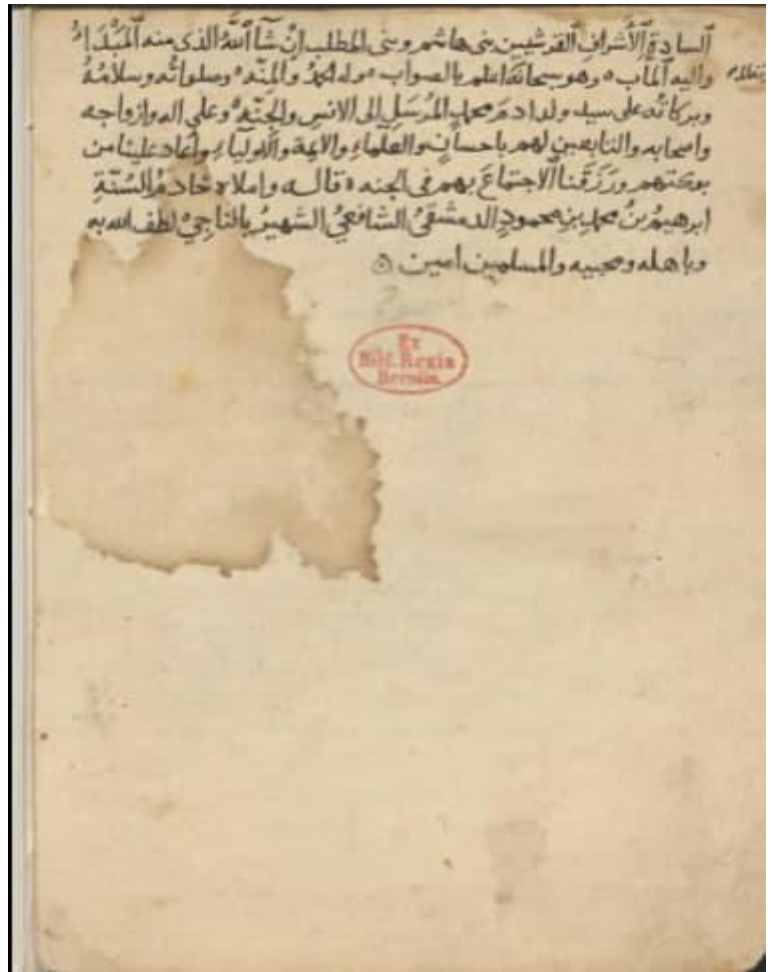 السادةِ الأشرافِ القرشيين بنى هاشم وبنى المطلب إنْ شآ اللّٰهُ الذى منه المَبْدَا
واليه المآب ٥ وهو سبحانَهُ اعلم بالصواب ٥ وله الحمدُ والمِنّه ٥ وصلواتُه وسلامُهُ
وبركاتُه على سيد ولد ادمَ محمدٍ المُرسَلِ إلى الانسِ والجِنّه ٥ وعلى اله وازواجه
واصحابه والتابعين لهم باحسانٍ والعلماءِ والايمة والاوليآءِ واعاد علينا من
بركتهم ورَزَقنا الاجتماعَ بهم فى الجنه ٥ قاله واملاه خادمُ السُنّةِ
ابرهيمُ بنُ محمدِ بنِ محمودٍ الدمشقىُّ الشافعىُّ الشهيرُ بالناجىْ لطف الله به
وباهله ومحبيه والمسلمين امين ۞
Ex
Bibl. Regia
Berolin.